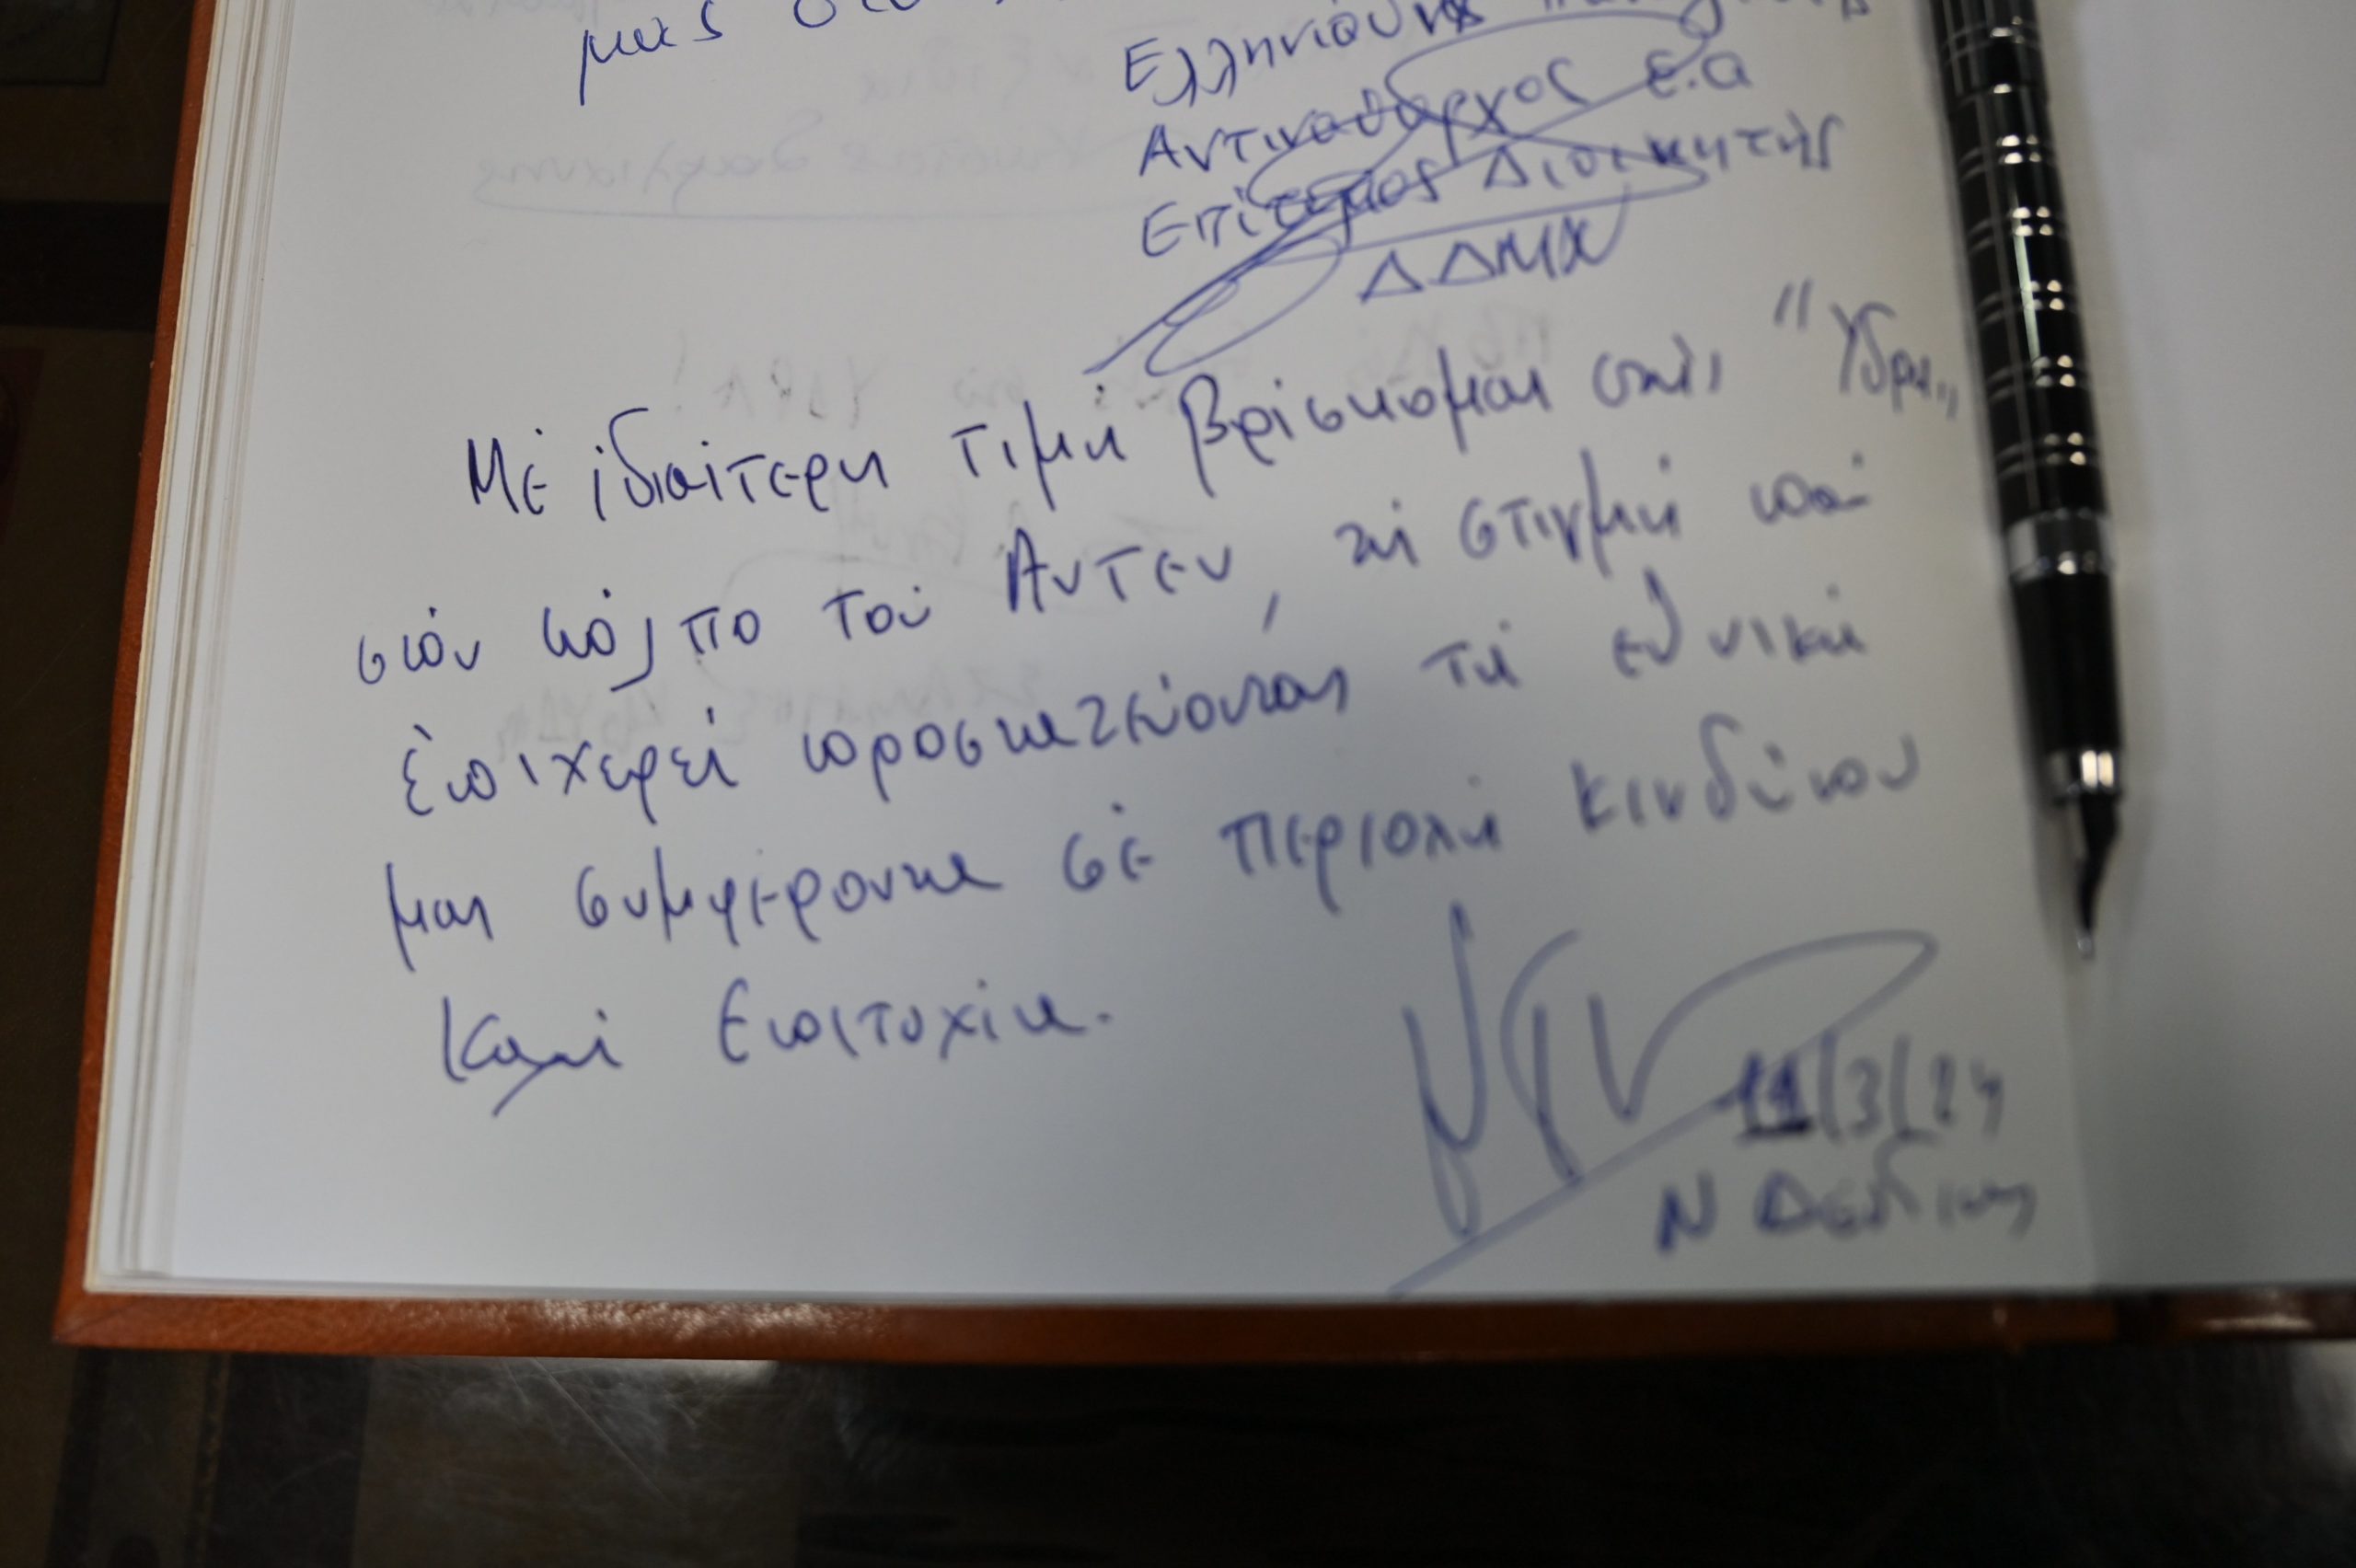 μας στο
Ελληνιούνης
Αντιναύαρχος ε.α
Επίτιμος Διοικητής
ΔΔΜΧ
Μέ ἰδιαίτερη τιμή βρίσκομαι στήν "Ύδρα"
στόν κόλπο τού Αντεν, τή στιγμή πού
ἐπιχειρεί προστατεύοντας τά εθνικά
μας συμφέροντα σέ περιοχή κινδύνου
Καλή Επιτυχία.
11/3/24
Ν Δένδιας